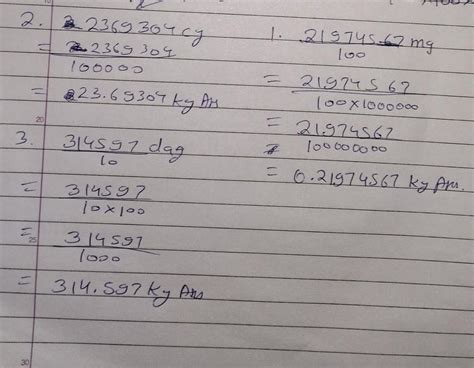 2. 2369304 cg
= 2369304
100000
= 23.69304 kg Ans
3. 314597 dag
10
= 314597
10 × 100
= 314597
1000
= 314.597 kg Ans
1. 219745.67 mg
100
= 21974567
100 × 1000000
= 21974567
100000000
= 0.21974567 kg Ans.
20
25
30